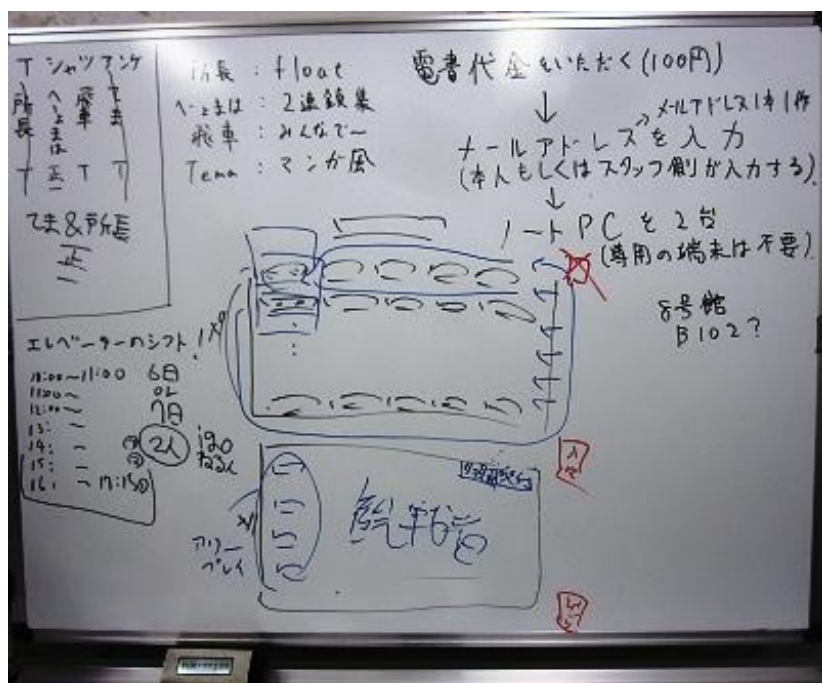 Tシャツアンケ
所長 へょまは 飛車 てま
T 正一 T T
てま&所長
正一
所長 : float
へょまは : 2連鎖集
飛車 : みんなで~
Tema : マンガ風
電書代金をいただく(100円)
↓ メールアドレス1本1件
メールアドレスを入力
(本人もしくはスタッフ側が入力する)
↓
ノートPCを2台
(専用の端末は不要)
8号館
B102?
エレベーターのシフト!
10:00~11:00 6日
11:00~ or
12:00~ 7日
13: ~
14: ~ 2人
15: ~
16: ~17:15
フリー
プレイ